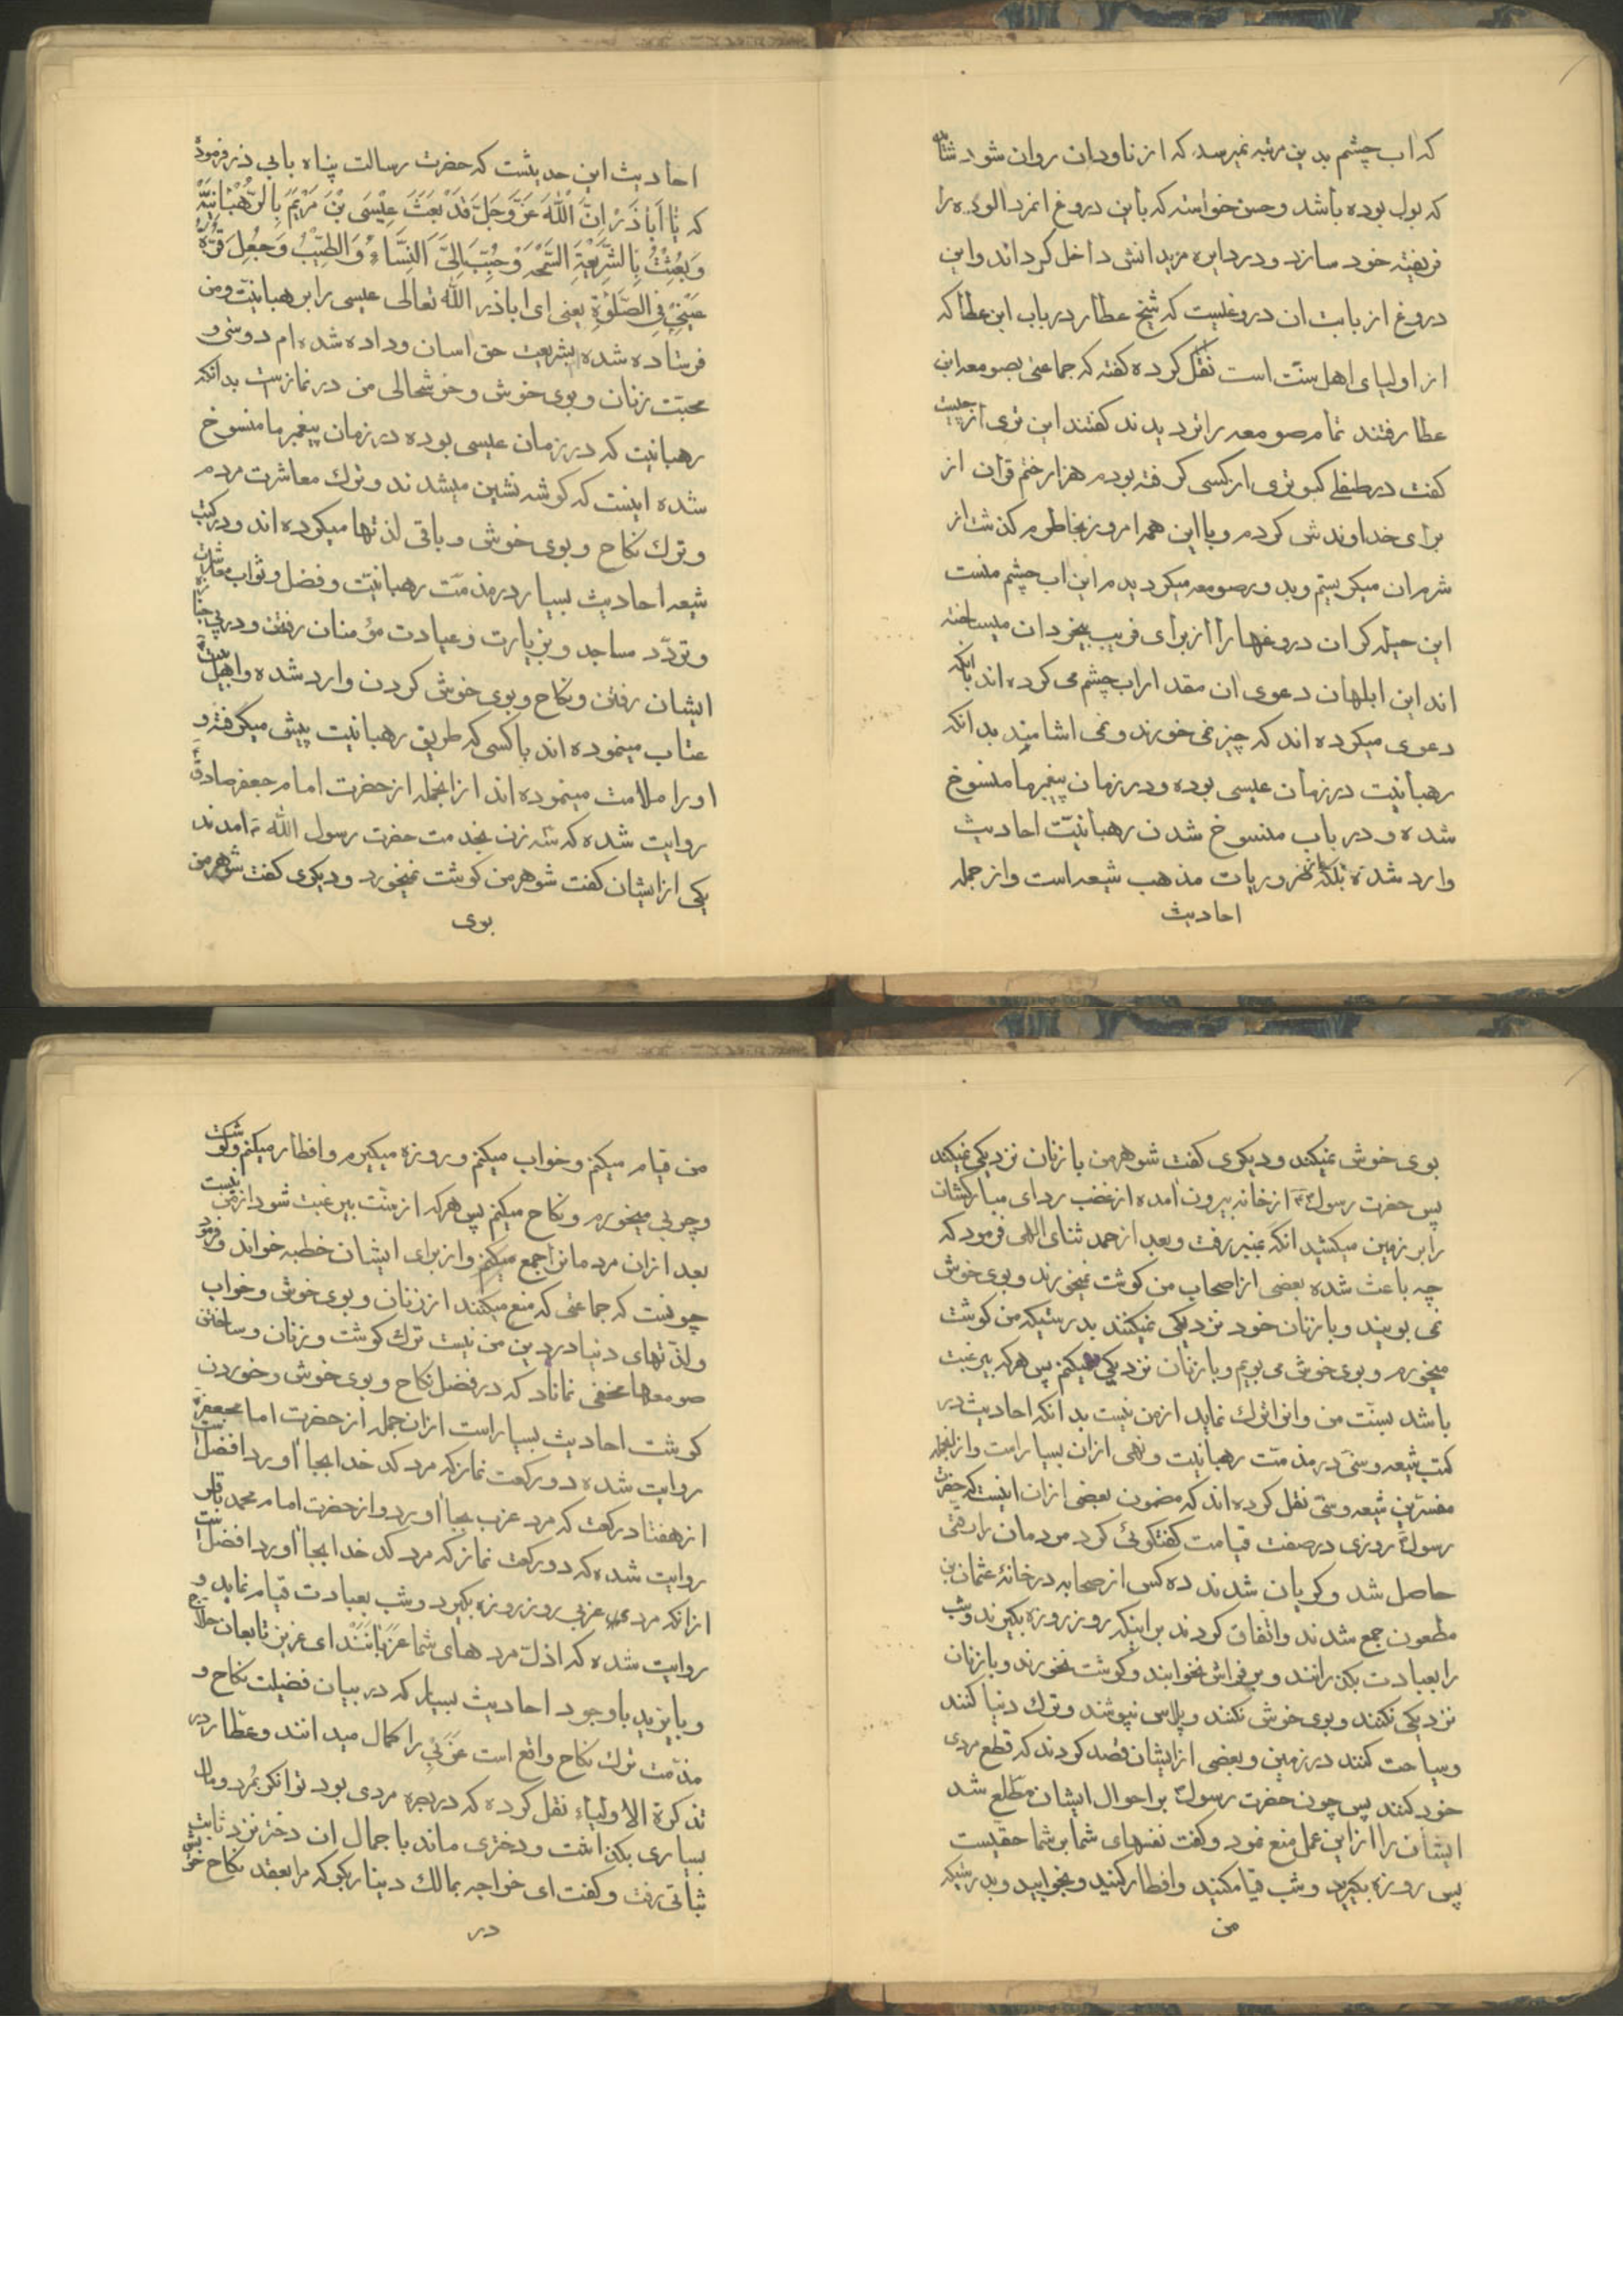 که اب چشم بدین مرتبه نمیرسد که از ناودان روان شود شاید
که بول بوده باشد و حسن خواسته که باین دروغ انمرد الوده را
فریفته خود سازد و در دایره مریدانش داخل کرداند و این
دروغ از بابت ان دروغیست که شیخ عطار در باب ابن عطا که
از اولیای اهل سنّت است نقل کرده کفته که جماعتی بصومعه ابن
عطا رفتند تمام صومعه را تر دیدند کفتند این تری از چیست
کفت در طفلی کبوتری از کسی کرفته بودم هزار ختم قران از
برای خداوندش کردم و با این همه امروز بخاطرم کذشت از
شرم ان میکریستم و بد و بر صومعه میکردیدم این اب چشم منست
این حیله کران دروغها را از برای فریب بیخردان میساخته
اند این ابلهان دعوی ان مقدار اب چشم می کرده اند باانکه
دعوی میکرده اند که چیز نمی خورند و نمی اشامند بدانکه
رهبانیت در زمان عیسی بوده و در زمان پیغمبر ما منسوخ
شده و در باب منسوخ شدن رهبانیّت احادیث
وارد شده بلکه از ضروریات مذهب شیعه است و از جمله
احادیث
احادیث این حدیثست که حضرت رسالت پناه بابی ذر فرموده
که یٰا اَبٰاذَرْ اِنَّ اللّٰهَ عَزَّ وَجَلَّ قَدْ بَعَثَ عِیْسَی بْنَ مَرْیَمَ بِالرُّهْبٰانِیَّة
وَ بُعِثْتُ بِالشَّرِیْعَةِ السَّمْحَةِ وَ حُبِّبَ اِلَیَّ النِّسَاءُ وَ الطِّیْبُ وَ جُعِلَ قُرَّةُ
عَیْنِی فِی الصَّلٰوةِ یعنی ای اباذر الله تعالی عیسی را برهبانیّت و من
فرستاده شده بشریعت حق اسان و داده شده ام دوستی و
محبّت زنان و بوی خوش و خوشحالی من در نماز است بدانکه
رهبانیت که در زمان عیسی بوده در زمان پیغمبر ما منسوخ
شده اینست که کوشه نشین میشدند و ترك معاشرت مردم
و ترك نکاح و بوی خوش و باقی لذتها میکرده اند و در کتب
شیعه احادیث بسیار در مذمّت رهبانیّت و فضل و ثواب معاشرت
و تردّد مساجد و بزیارت و عیادت مؤمنان رفتن و در پی جنازه
ایشان رفتن و نکاح و بوی خوش کردن وارد شده و اهل بیت
عتاب مینموده اند با کسی که طریق رهبانیت پیش میکرفته و
او را ملامت مینموده اند از انجمله از حضرت امام جعفر صادق
روایت شده که سه زن بخدمت حضرت رسول الله امدند
یکی از ایشان کفت شوهر من کوشت نمیخورد و دیکری کفت شوهر من
بوی
بوی خوش نمیکند و دیکری کفت شوهر من با زنان نزدیکی نمیکند
پس حضرت رسول از خانه بیرون امده از غضب ردای مبارکشان
را بر زمین میکشید انکه بمنبر رفت و بعد از حمد ثنای الهی فرمود که
چه باعث شده بعضی از اصحاب من کوشت نمیخورند و بوی خوش
نمی بویند و با زنان خود نزدیکی نمیکنند بدرستیکه من کوشت
میخورم و بوی خوش می بویم و با زنان نزدیکی میکنم پس هر که بیرغبت
باشد بسنّت من و انرا ترك نماید از من نیست بدانکه احادیث در
کتب شیعه و سنّی در مذمّت رهبانیت و نهی از ان بسیار است و از انجمله
مفسّرین شیعه و سنّی نقل کرده اند که مضمون بعضی از ان اینست که حضرت
رسول روزی در صفت قیامت کفتکوئی کرد مردمان را رقتی
حاصل شد و کریان شدند ده کس از صحابه در خانۀ عثمان بن
مظعون جمع شدند و اتفاق کردند بر اینکه روز روزه بکیرند و شب
را بعبادت بکذرانند و بر فراش نخوابند و کوشت نخورند و با زنان
نزدیکی نکنند و بوی خوش نکنند و پلاس بپوشند و ترك دنیا کنند
و سیاحت کنند در زمین و بعضی از ایشان قصد کردند که قطع مردی
خود کنند پس چون حضرت رسول بر احوال ایشان مطّلع شد
ایشان را از این عمل منع نمود و کفت نفسهای شما بر شما حقیست
پس روزه بکیرید و شب قیام کنید و افطار کنید و بخوابید و بدرستیکه
من
من قیام میکنم و خواب میکنم و روزه میکیرم و افطار میکنم و کوشت
و چربی میخورم و نکاح میکنم پس هر که از سنّت بیرغبت شود از من نیست
بعد از ان مردمان را جمع میکنم و از برای ایشان خطبه خواند و فرمود
چونست که جماعتی که منع میکنند از زنان و بوی خوش و خواب
و لذّتهای دنیا در دین من نیست ترك کوشت و زنان و ساختن
صومعها مخفی نماناد که در فضل نکاح و بوی خوش و خوردن
کوشت احادیث بسیار است از ان جمله از حضرت امام جعفر
روایت شده دو رکعت نماز که مرد کدخدا بجا اورد افضل است
از هفتاد رکعت که مرد عزب بجا اورد و از حضرت امام محمد باقر
روایت شده که دو رکعت نماز که مرد کدخدا بجا اورد افضل است
از انکه مرد عزبی روز روزه بکیرد و شب بعبادت قیام نماید و
روایت شده که اذلّ مردهای شما عزبانند ای عزیز تابعان حلاج
و بایزید باوجود احادیث بسیار که در بیان فضیلت نکاح و
مذمّت ترك نکاح واقع است عزبی را کمال میدانند و عطّار در
تذکرة الاولیاء نقل کرده که در بصره مردی بود توانکر بمُرد و مال
بسیاری بکذاشت و دختری ماند با جمال ان دختر نزد ثابت
بنانی رفت و کفت ای خواجه بمالك دینار بکو که مرا بعقد نکاح خویش
در